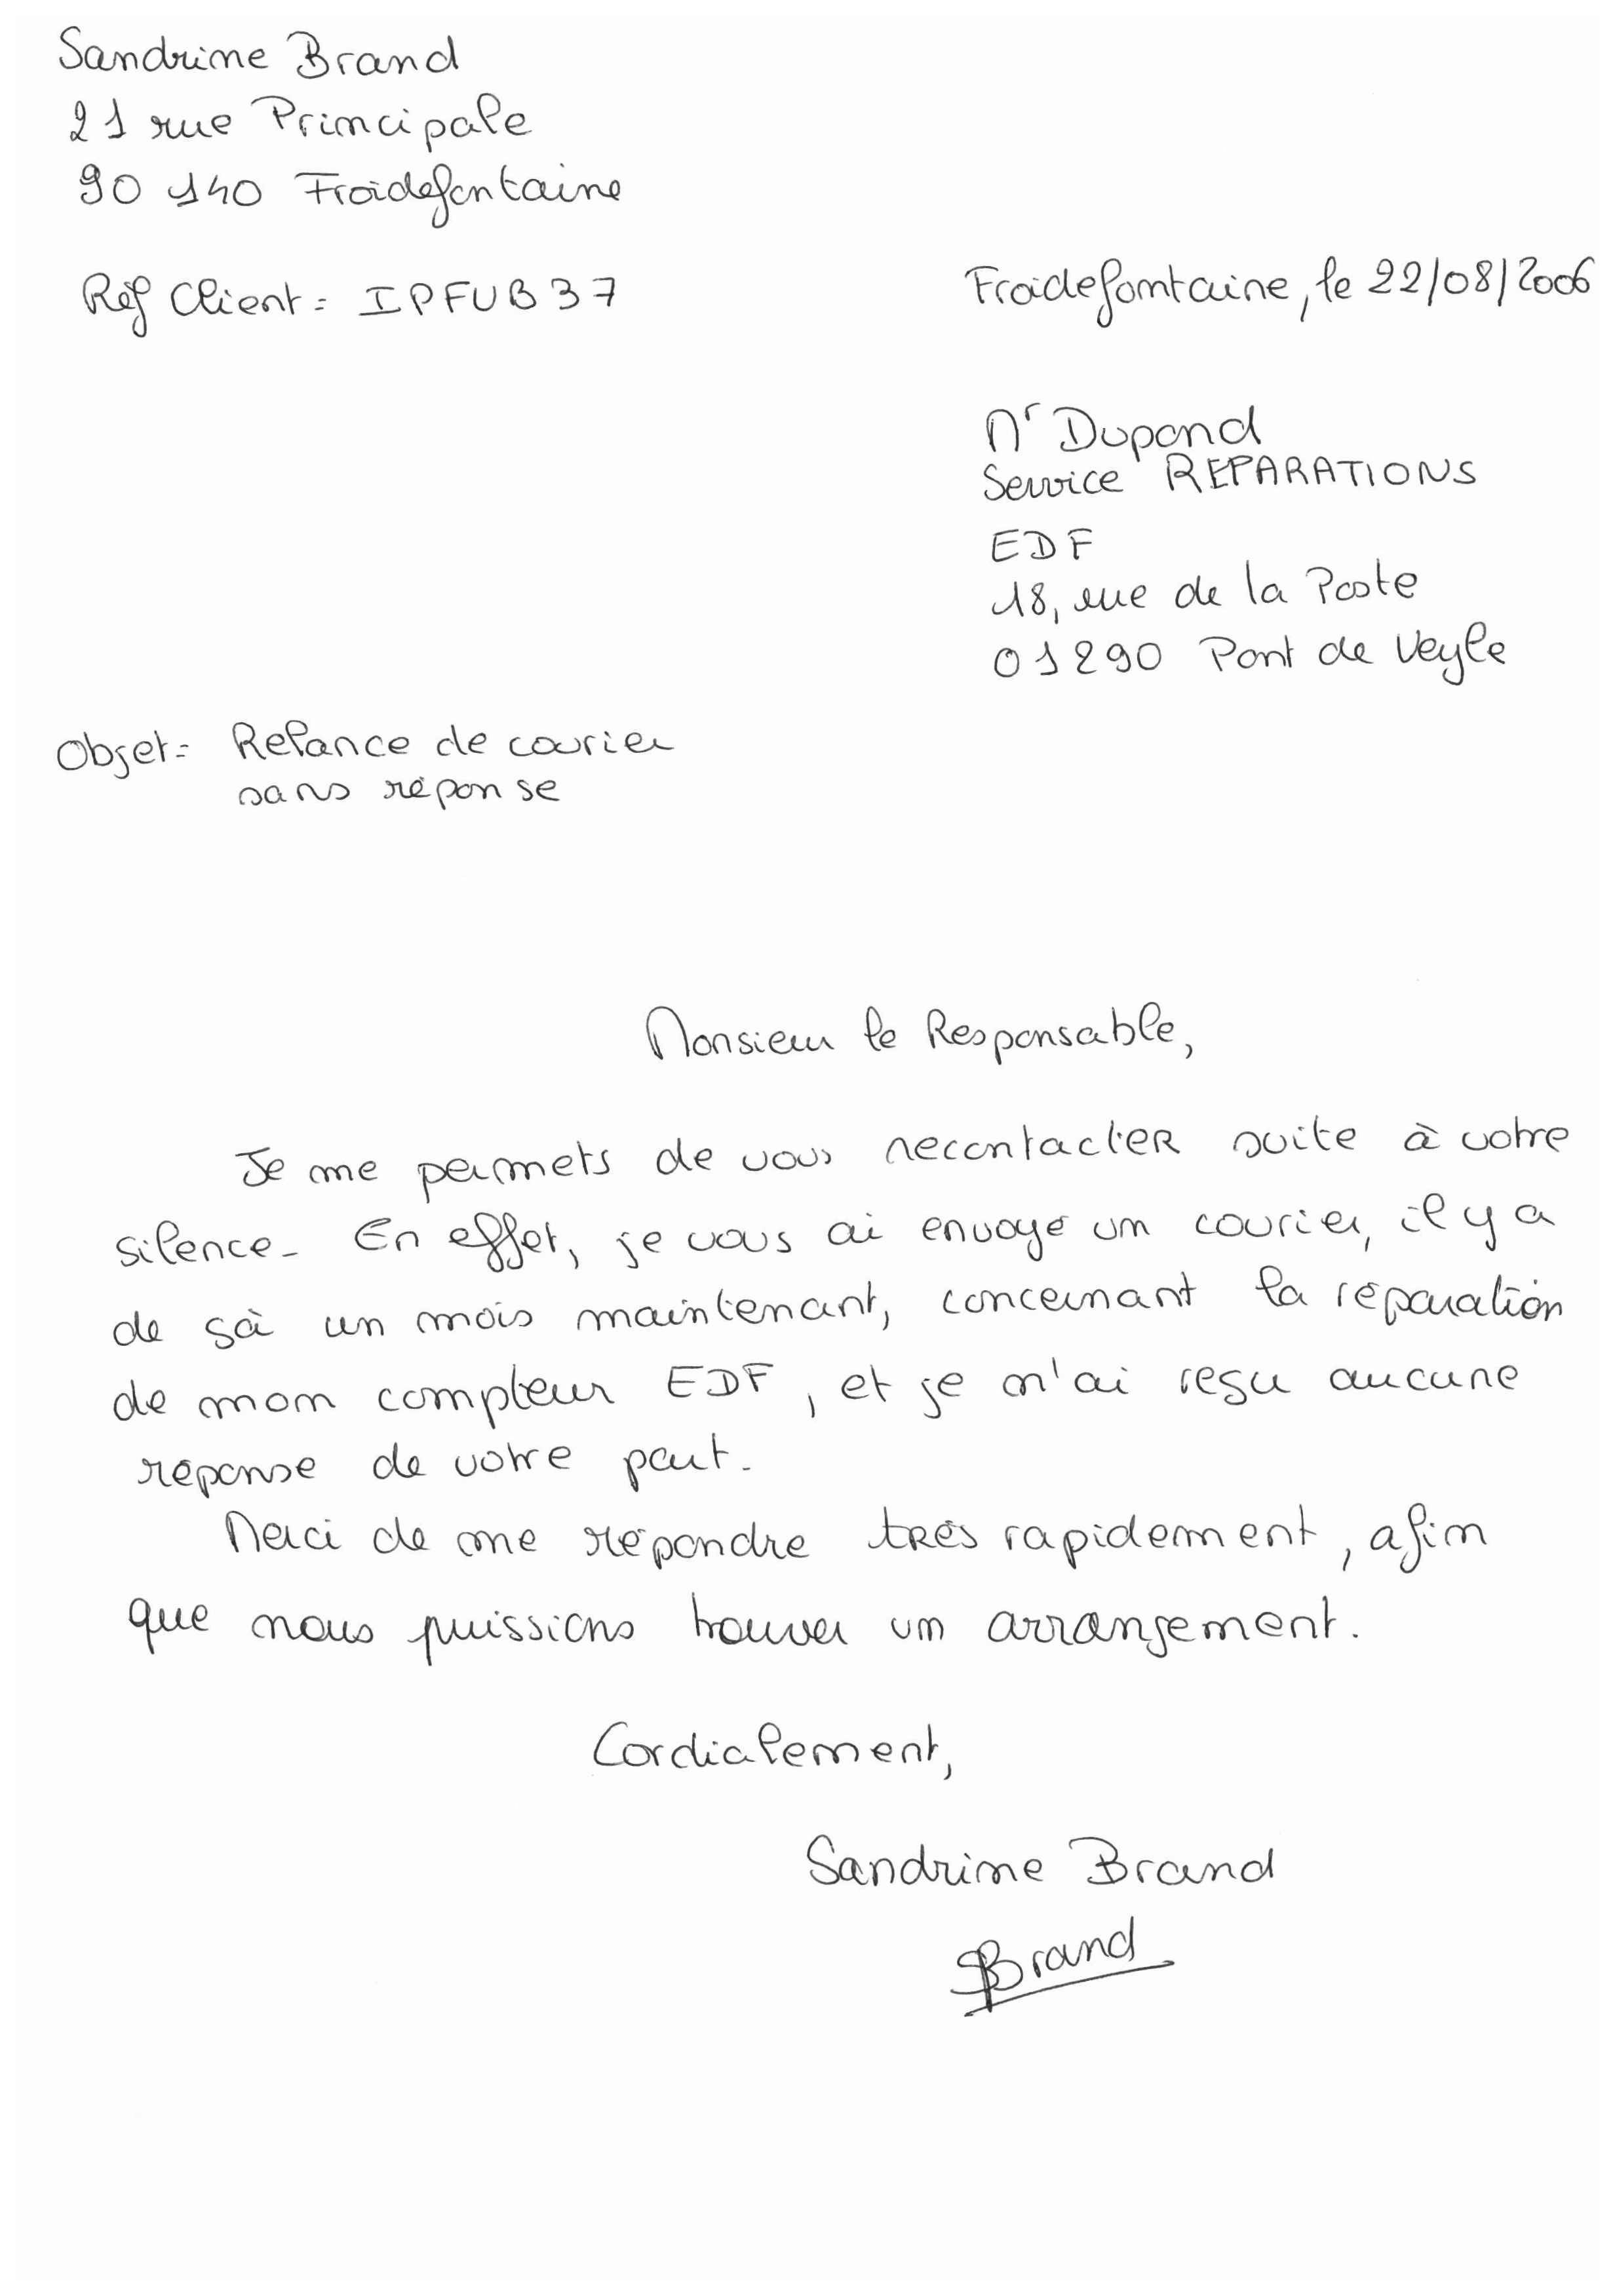 Sandrine Brand
21 rue Principale
90 140 Froidefontaine
Réf Client : IPFUB37
Froidefontaine, le 22/08/2006
Mr Dupond
Service REPARATIONS
EDF
18, rue de la Poste
01290 Pont de Veyle
Objet : Relance de courier
sans réponse
Monsieur le Responsable,
Je me permets de vous recontacter suite à votre
silence. En effet, je vous ai envoyé un courier, il y a
de sà un mois maintenant, concernant la réparation
de mon compteur EDF, et je n'ai resu aucune
réponse de votre part.
Merci de me répondre très rapidement, afin
que nous puissions trouver un arrangement.
Cordialement,
Sandrine Brand
SBrand